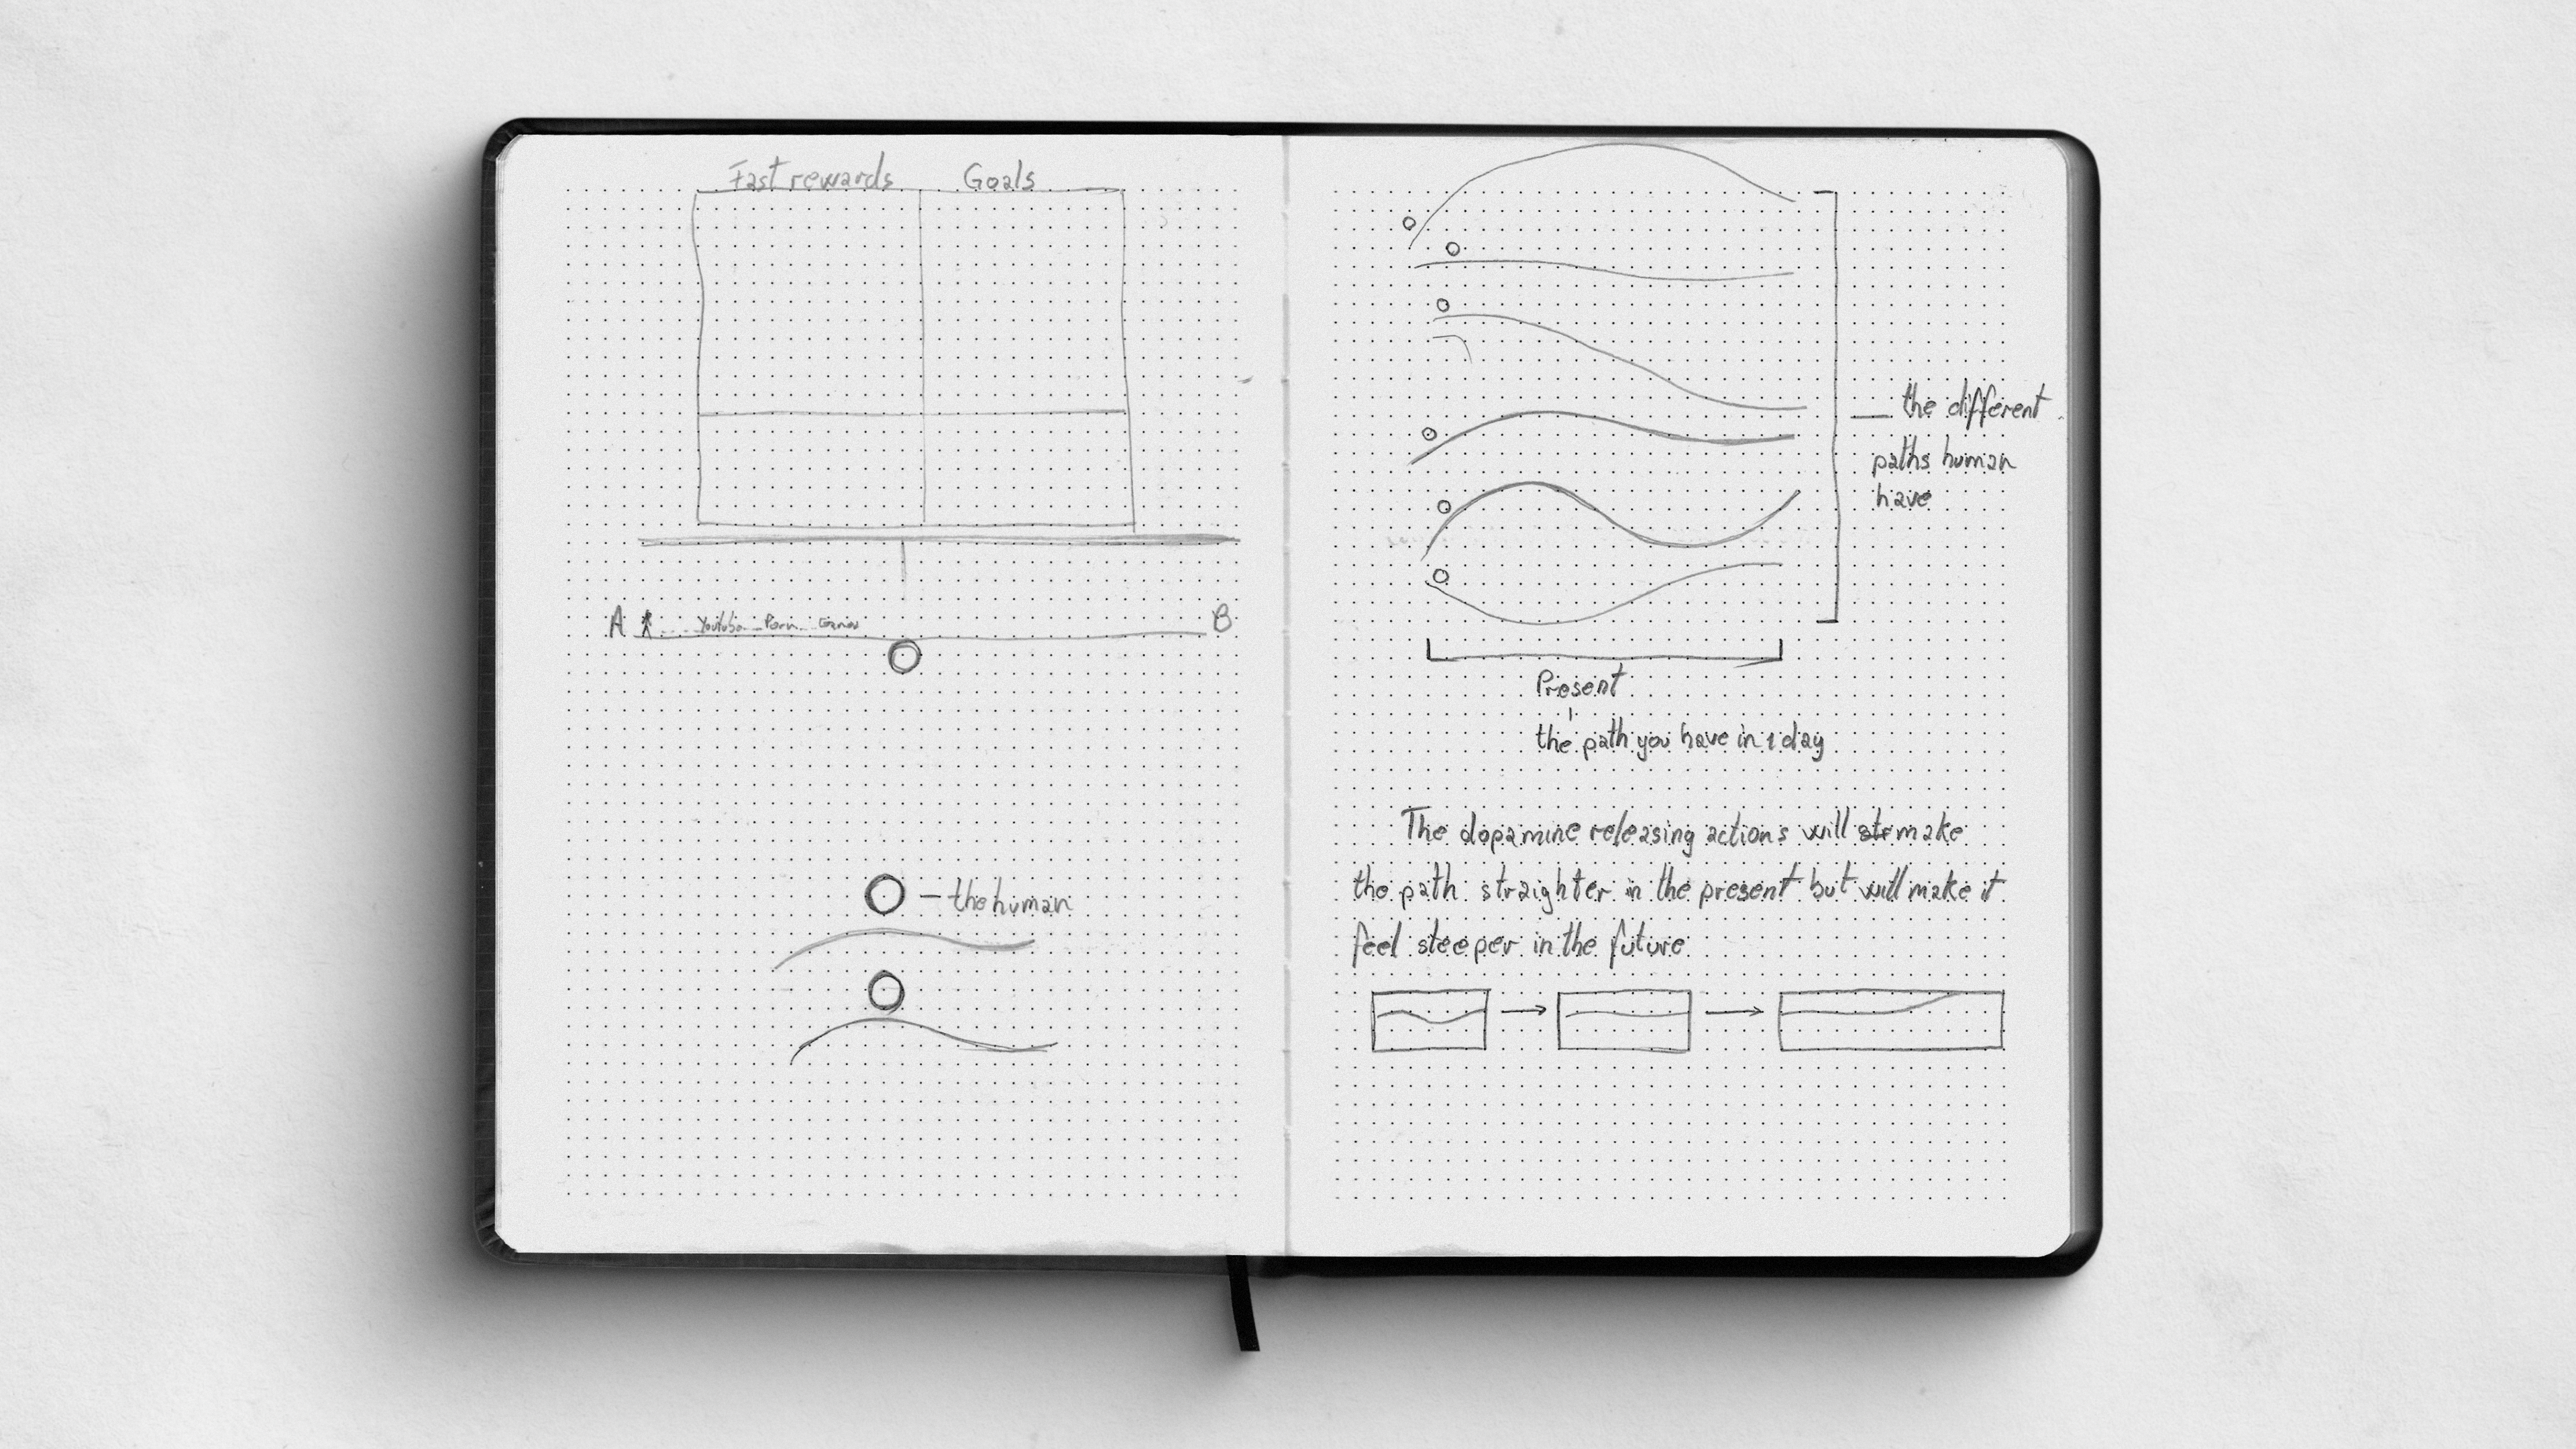 Fast rewards Goals
A Youtube Porn Games B
– the human
– the different
paths human
have
Present
the path you have in 1 day
The dopamine releasing actions will str make
the path straighter in the present but will make it
feel steeper in the future